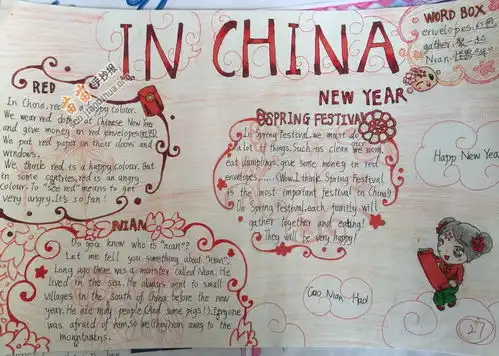 IN CHINA
WORD BOX
envelopes:红包
gather:聚一起
Nian:怪兽"年"
RED
In China, red is a happy colour.
We wear red at Chinese New Year
and give money in red envelopes(红包).
We put red paper on their doors and
windows.
We think red is a happy colour. But
in some centries, red is an angry
colour. To "see red" means to get
very angry. It's so fan!
NEW YEAR
SPRING FESTIVAL
In Spring Festival, we must do
a lot of things. Such as clean we room,
eat dumplings, give some money in red
envelopes......(Wow, I think Spring Festival
is the most important festival in China!)
In Spring Festival, each family will
gather together and eating!
They will be very happy!
Happy New Year
NIAN
Do you know who is "nian"?
Let me tell you something about "nean".
Long ago there was a monster called Nian. He
lived in the sea. He always went to small
villages in the south of China before the new
year. He ate many people (And some pigs!). Everyone
was afraid of him, so we(they) ran away to the
mountains.
Guo Nian Hao!
27